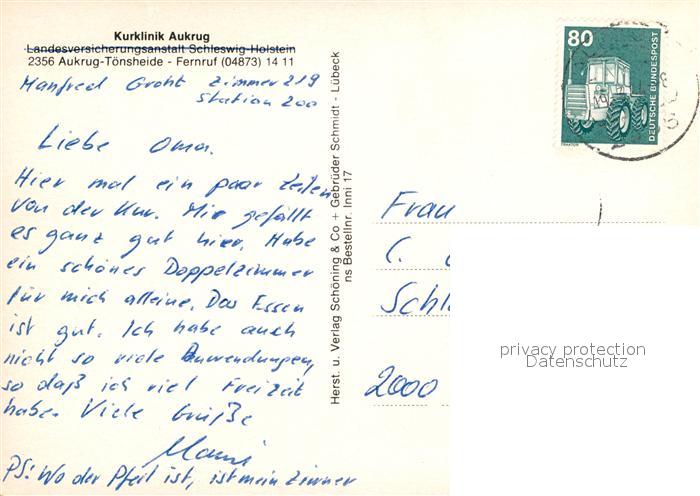 Kurklinik Aukrug
Landesversicherungsanstalt Schleswig-Holstein
2356 Aukrug-Tönsheide - Fernruf (04873) 14 11
Manfred Groht Zimmer 219
Station 200
Liebe Oma.
Hier mal ein paar Zeilen
von der Kur. Mir gefällt
es ganz gut hier. Habe
ein schönes Doppelzimmer
für mich alleine. Das Essen
ist gut. Ich habe auch
nicht so viele Anwendungen,
so daß ich viel Freizeit
habe. Viele Grüße
PS: Wo der Pfeil ist, ist mein Zimmer
Herst. u. Verlag Schöning & Co + Gebrüder Schmidt - Lübeck
ns Bestellnr. Inni 17
80
DEUTSCHE BUNDESPOST
TRAKTOR
Frau
C.
Schl
2000
privacy protection
Datenschutz